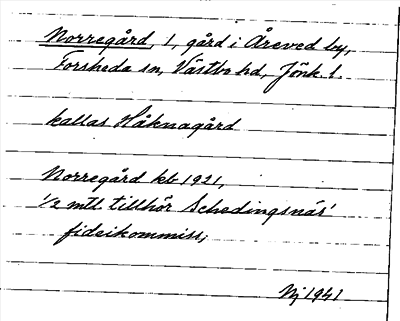 Norregård 1, gård i Åreved by,
Forsheda sn, Västbo hd, Jönk. l.
kallas Håknagård
Norregård kb 1921,
1/2 mtl. tillhör Schedingsnäs'
fideikommiss,
Nj 1941